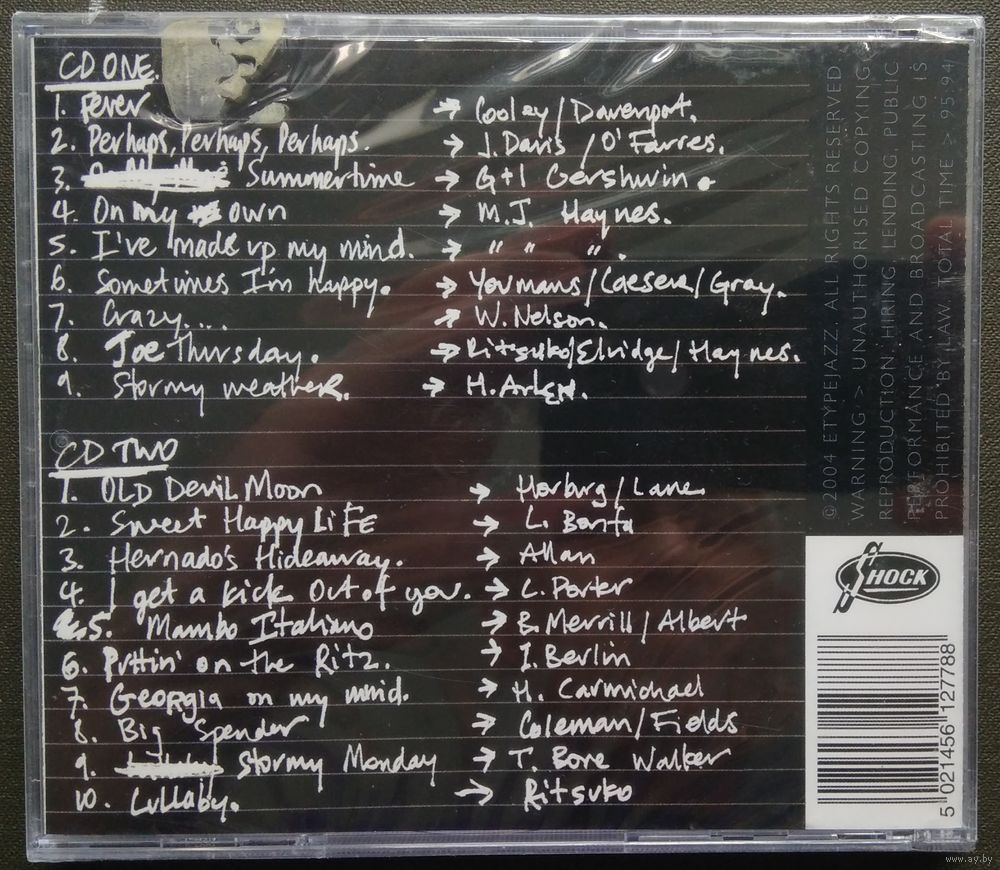 CD ONE.
1. Fever → Cooley/Davenport.
2. Perhaps, Perhaps, Perhaps. → J. Davis / O'Farres.
3. Summertime → G+I Gershwin.
4. On my own → M.J. Haynes.
5. I've made up my mind. → " " ".
6. Sometimes I'm happy. → Youmans/Caeser/Gray.
7. Crazy.... → W. Nelson.
8. Joe Thursday. → Ritsuko/Elridge/Haynes.
9. Stormy weather. → H. Arlen.
CD TWO
1. OLD Devil Moon → Harburg/Lane
2. Sweet Happy LiFE → L. Bonfa
3. Hernado's Hideaway. → Allan
4. I get a kick out of you. → C. Porter
5. Mambo Italiano → B. Merrill / Albert
6. Puttin' on the Ritz. → I. Berlin
7. Georgia on my mind. → H. Carmichael
8. Big Spender → Coleman/Fields
9. Stormy Monday → T. Bone Walker
10. Lullaby. → Ritsuko
©2004 ETYPEJAZZ. ALL RIGHTS RESERVED
WARNING > UNAUTHORISED COPYING,
REPRODUCTION, HIRING, LENDING, PUBLIC
PERFORMANCE AND BROADCASTING IS
PROHIBITED BY LAW. TOTAL TIME > 95:94
SHOCK
5 021456 127788
www.ay.by